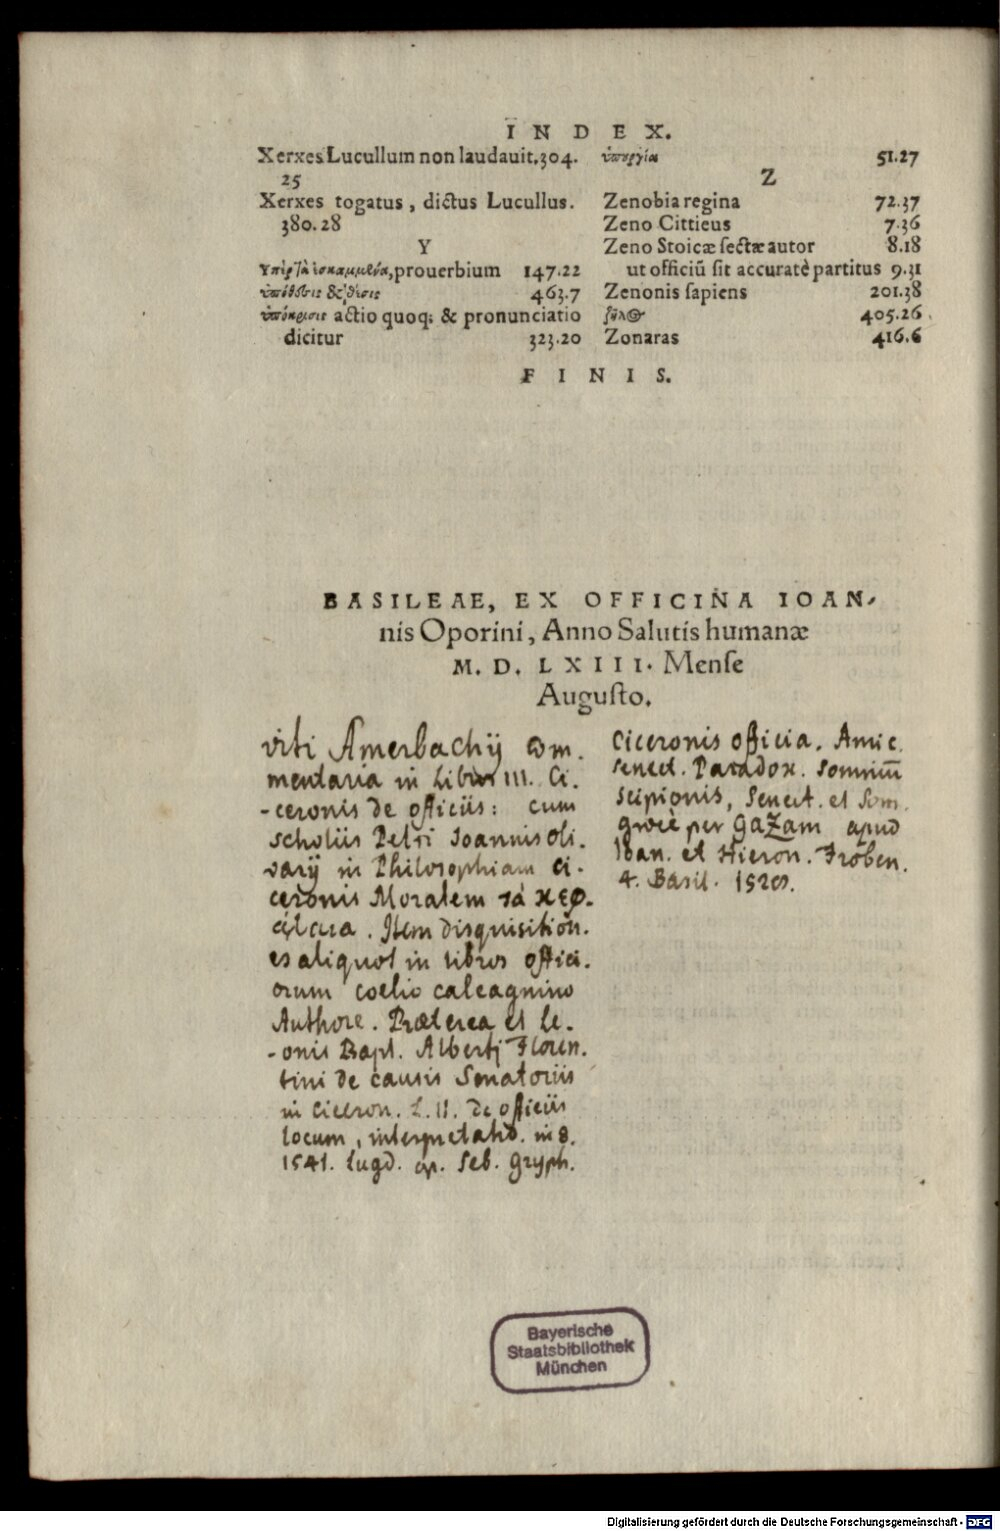 INDEX.
Xerxes Lucullum non laudauit. 304.
25
Xerxes togatus, dictus Lucullus.
380.28
Y
ὑπὲρ τὰ ἐσκαμμένα, prouerbium 147.22
ὑπόθεσις & θέσις 463.7
ὑπόκρισις actio quoq; & pronunciatio
dicitur 323.20
ὑπουργία 51.27
Z
Zenobia regina 72.37
Zeno Cittieus 7.36
Zeno Stoicæ sectæ autor 8.18
ut officiũ sit accuratè partitus 9.31
Zenonis sapiens 201.38
ζῆλος 405.26
Zonaras 416.6
FINIS.
BASILEAE, EX OFFICINA IOAN-
nis Oporini, Anno Salutis humanæ
M. D. LXIII. Mense
Augusto.
viti Amerbachij Com.
mentaria in Libros III. Ci.
-ceronis de officiis: cum
scholiis Petri Joannis oli.
varij in Philosophiam Ci.
ceronis Moralem τὰ κεφ.
άλαια. Item disquisition.
es aliquot in libros offici.
orum coelio calcagnino
Authore. Præterea et Le.
-onis Bapt. Albertj Floren.
tini de causis Senatoriis
in Ciceron. L. II. de officiis
locum, interpretatio. in 8.
1541. Lugd. ap. Seb. Gryph.
Ciceronis officia. Amic.
senect. Paradox. somniũ
scipionis, Senect. et Som.
græcè per GaZam apud
Ioan. et Hieron. Froben.
4. Basil. 1528.
Bayerische
Staatsbibliothek
München
Digitalisierung gefördert durch die Deutsche Forschungsgemeinschaft - DFG